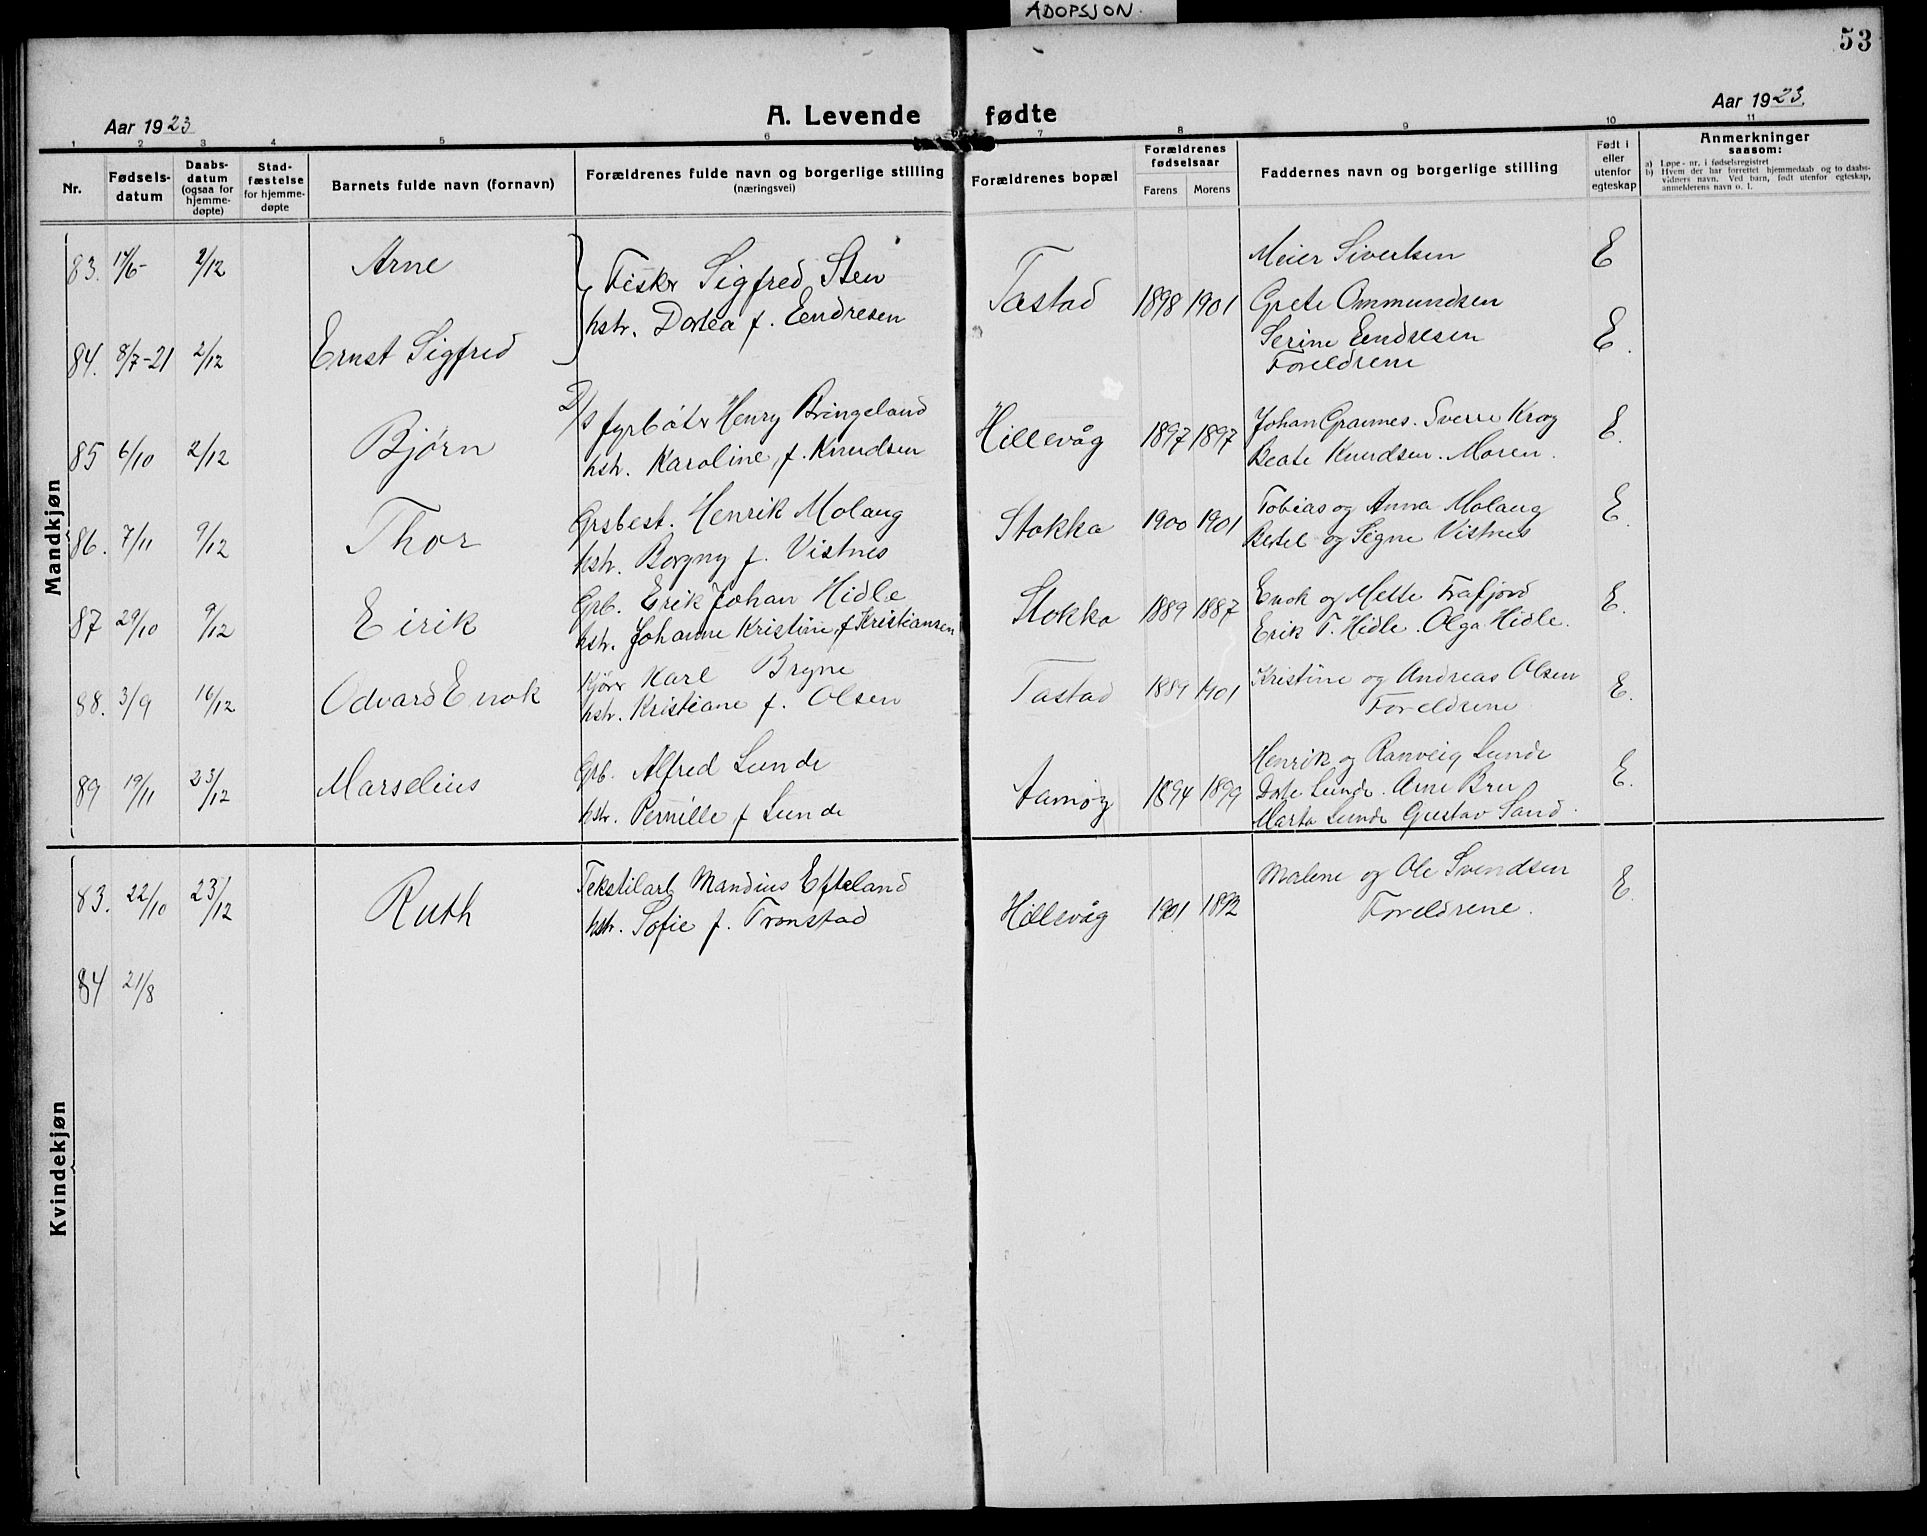 ADOPSJON.
53
Aar 1923
A. Levende fødte
Aar 1923.
1 2 3 4 5 6 7 8 9 10 11
Nr.
Fødsels-
datum
Daabs-
datum
(ogsaa for
hjemme-
døpte)
Stad-
fæstelse
for hjemme-
døpte
Barnets fulde navn (fornavn)
Forældrenes fulde navn og borgerlige stilling
(næringsvei)
Forældrenes bopæl
Forældrenes
fødselsaar
Farens Morens
Faddernes navn og borgerlige stilling
Født i
eller
utenfor
egteskap
Anmerkninger
saasom:
a) Løpe-nr. i fødselsregistret
b) Hvem der har forrettet hjemmedaab og to daabs-
vidners navn. Ved barn, født utenfor egteskap,
anmelderens navn o. l.
Mandkjøn
83. 2/12 Arne
Fisker Sigfred Sten
hstr. Dortea f. Eendresen
Tastad 1898 1901
Meier Sivertsen
Grete Ommundsen
Serine Eendresen
Foreldrene
E
84. 8/7-21 2/12 Ernst Sigfred E.
85 6/10 2/12 Bjørn
D/s fyrbøter Henry Bringeland
hstr. Karoline, f. Knudsen
Hillevåg 1897 1897
Johan Graunes. Sverre Krog
Beate Knudsen. Moren.
E.
86. 7/11 9/12 Thor
Grsbest. Henrik Molaug
hstr. Borgny f. Vistnes
Stokka 1900 1901
Tobias og Anna Molaug
Bertel og Signe Vistnes
E.
87 29/10 9/12 Eirik
Grb. Erik Johan Hidle
hstr. Johanne Kristine, f Kristiansen
Stokka 1889 1887
Enok og Mette Frafjord
Erik T. Hidle. Olga Hidle.
E.
88. 3/9 16/12 Odvard Enok
Kjører Karl Bryne
hstr. Kristiane f. Olsen
Tastad 1889 1901
Kristine og Andreas Olsen
Foreldrene
E.
89 19/11 23/12 Marselius
Grb. Alfred Lunde
hstr. Pernille f Lunde
Aamøy 1894 1899
Henrik og Ranveig Lunde
Dorte Lunde. Arne Bru
Marta Lunde Gustav Sand.
E.
Kvindekjøn
83. 22/10 23/12 Ruth
Tekstilarb. Mandius Efteland
hstr. Sofie f. Tronstad
Hillevåg 1901 1892
Malene og Ole Svendsen
Foreldrene.
E.
84 21/8